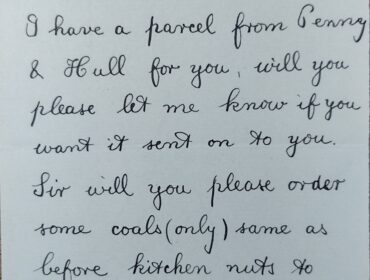 I have a parcel from Penny
& Hull for you, will you
please let me know if you
want it sent on to you.
Sir will you please order
some coals (only) same as
before kitchen nuts to